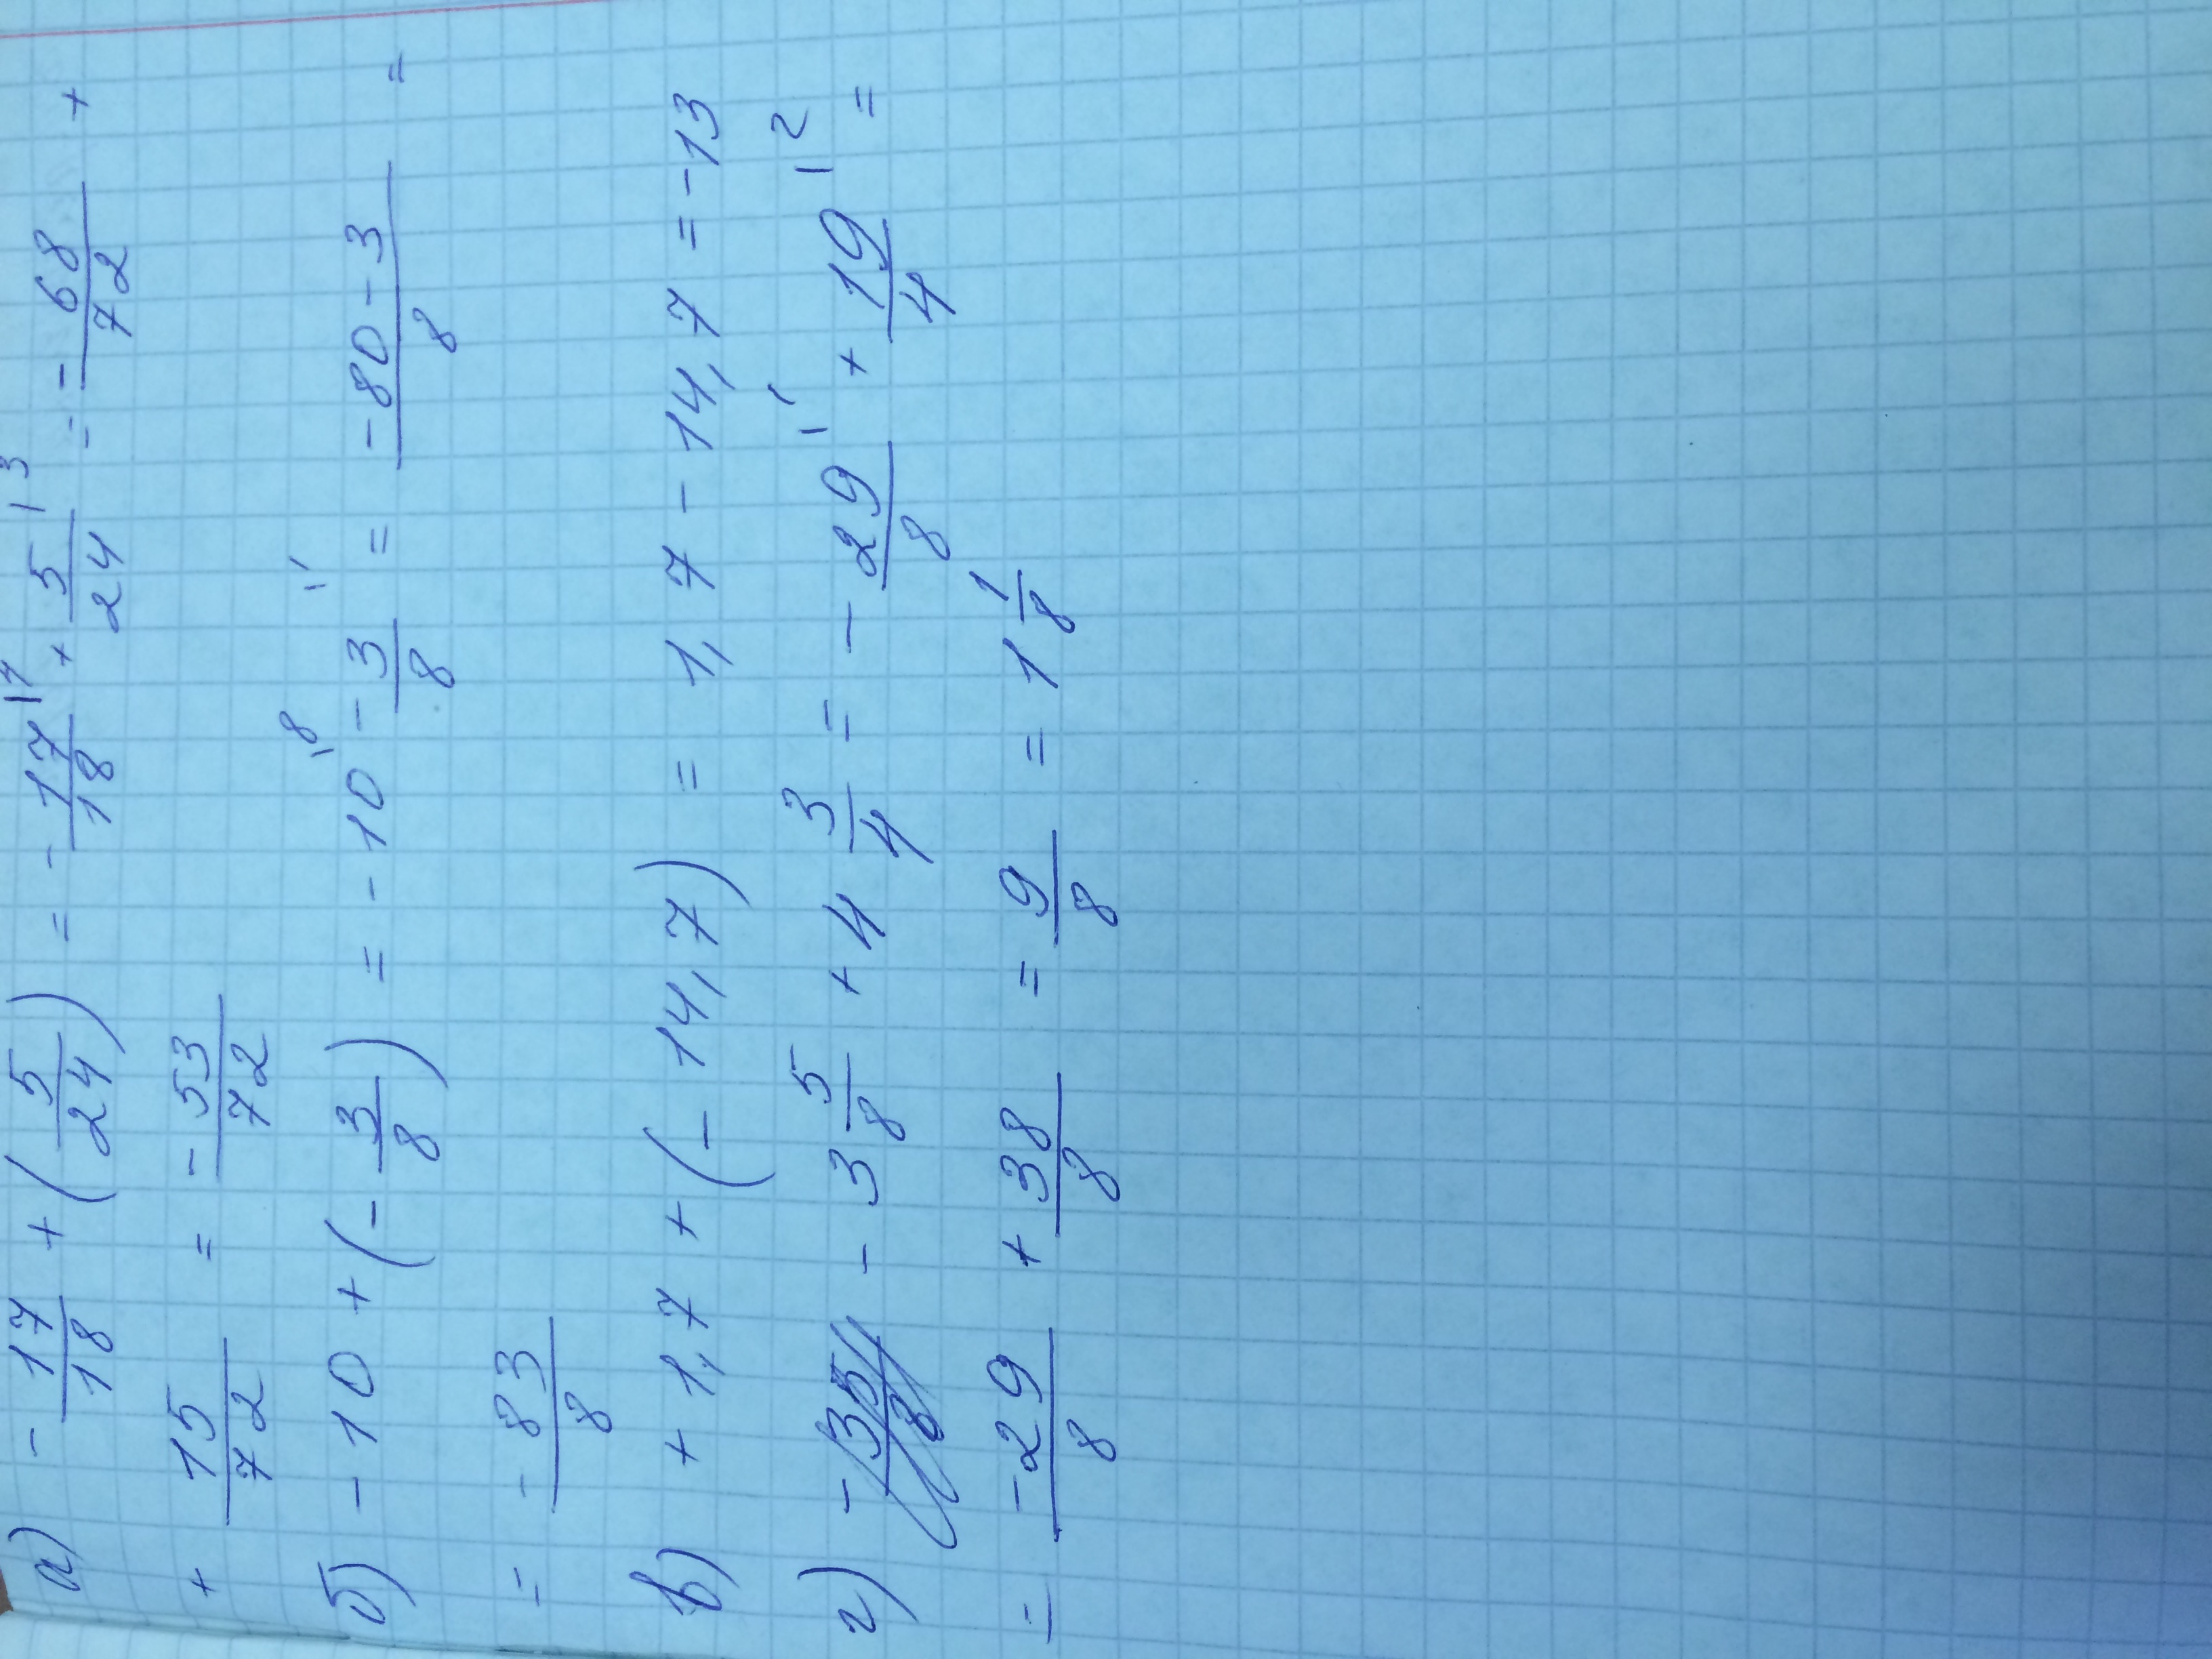 а) - 17/18 + (5/24) = - 17/18 |4 + 5/24 |3 = - 68/72 +
+ 15/72 = - 53/72
б) - 10 + (- 3/8) = - 10 |8 - 3/8 |1 = (-80 - 3)/8 =
= - 83/8
в) + 1,7 + (- 14,7) = 1,7 - 14,7 = -13
г) - 35/8 - 3 5/8 + 4 3/4 = - 29/8 |1 + 19/4 |2 =
= -29/8 + 38/8 = 9/8 = 1 1/8